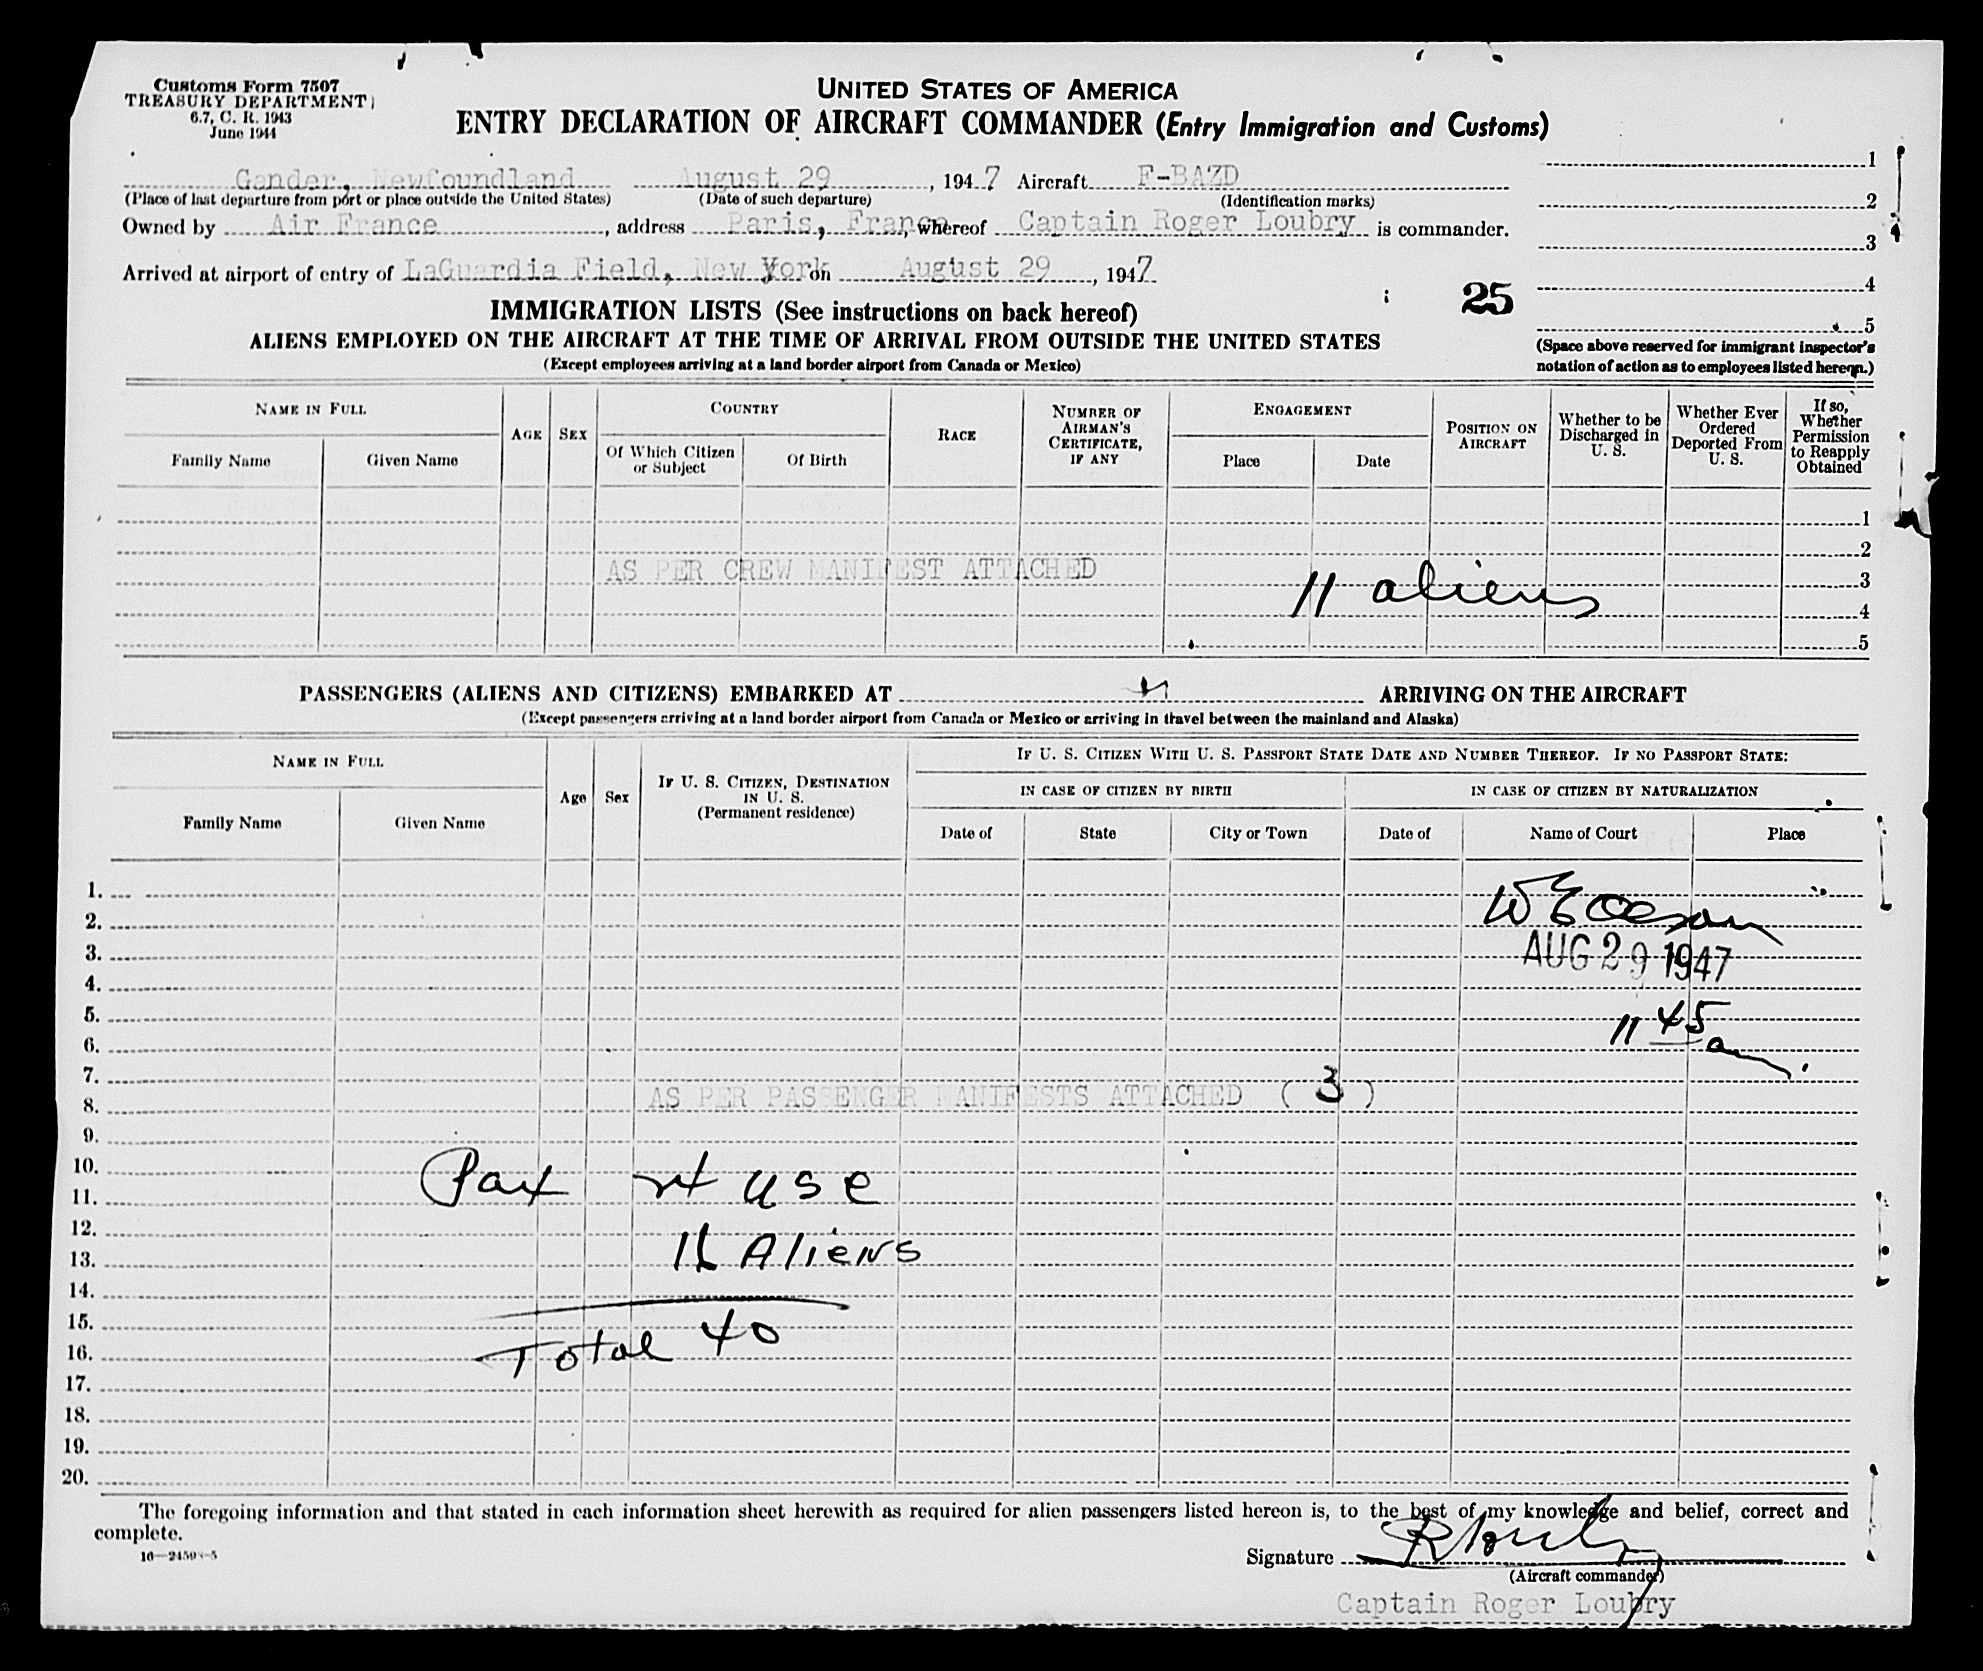 Customs Form 7507
TREASURY DEPARTMENT
6.7, C. R. 1943
June 1944
UNITED STATES OF AMERICA
ENTRY DECLARATION OF AIRCRAFT COMMANDER (Entry Immigration and Customs)
Gander, Newfoundland August 29, 1947 Aircraft F-BAZD
(Place of last departure from port or place outside the United States) (Date of such departure) (Identification marks)
Owned by Air France, address Paris, France, whereof Captain Roger Loubry is commander.
Arrived at airport of entry of LaGuardia Field, New York on August 29, 1947
1
2
3
4
5
25
(Space above reserved for immigrant inspector's notation of action as to employees listed hereon.)
IMMIGRATION LISTS (See instructions on back hereof)
ALIENS EMPLOYED ON THE AIRCRAFT AT THE TIME OF ARRIVAL FROM OUTSIDE THE UNITED STATES
(Except employees arriving at a land border airport from Canada or Mexico)
NAME IN FULL
Family Name
Given Name
AGE
SEX
COUNTRY
Of Which Citizen or Subject
Of Birth
RACE
NUMBER OF AIRMAN'S CERTIFICATE, IF ANY
ENGAGEMENT
Place
Date
POSITION ON AIRCRAFT
Whether to be Discharged in U. S.
Whether Ever Ordered Deported From U. S.
If so, Whether Permission to Reapply Obtained
1
2
AS PER CREW MANIFEST ATTACHED
11 aliens
3
4
5
PASSENGERS (ALIENS AND CITIZENS) EMBARKED AT ARRIVING ON THE AIRCRAFT
(Except passengers arriving at a land border airport from Canada or Mexico or arriving in travel between the mainland and Alaska)
NAME IN FULL
Family Name
Given Name
Age
Sex
IF U. S. CITIZEN, DESTINATION IN U. S.
(Permanent residence)
IF U. S. CITIZEN WITH U. S. PASSPORT STATE DATE AND NUMBER THEREOF. IF NO PASSPORT STATE:
IN CASE OF CITIZEN BY BIRTH
IN CASE OF CITIZEN BY NATURALIZATION
Date of
State
City or Town
Date of
Name of Court
Place
1.
2.
3. AUG 29 1947
4.
5.
11 45 am
6.
7.
AS PER PASSENGER MANIFESTS ATTACHED (3)
8.
9.
10.
Pax USC
11.
12.
Aliens
13.
14.
15.
Total 40
16.
17.
18.
19.
20.
The foregoing information and that stated in each information sheet herewith as required for alien passengers listed hereon is, to the best of my knowledge and belief, correct and
complete.
Signature
(Aircraft commander)
Captain Roger Loubry